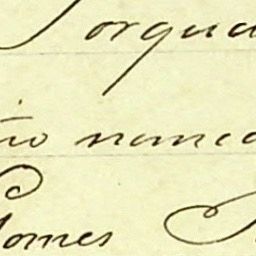 Torqua
tio nomea
Gomes